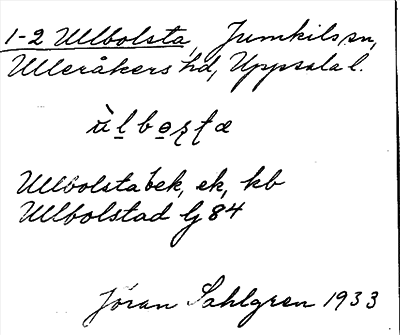 1-2 Ullbolsta, Jumkils sn,
Ulleråkers hd, Uppsala l.
Ullbolsta bek, ek, kb
Ullbolstad Gj 84
Jöran Sahlgren 1933